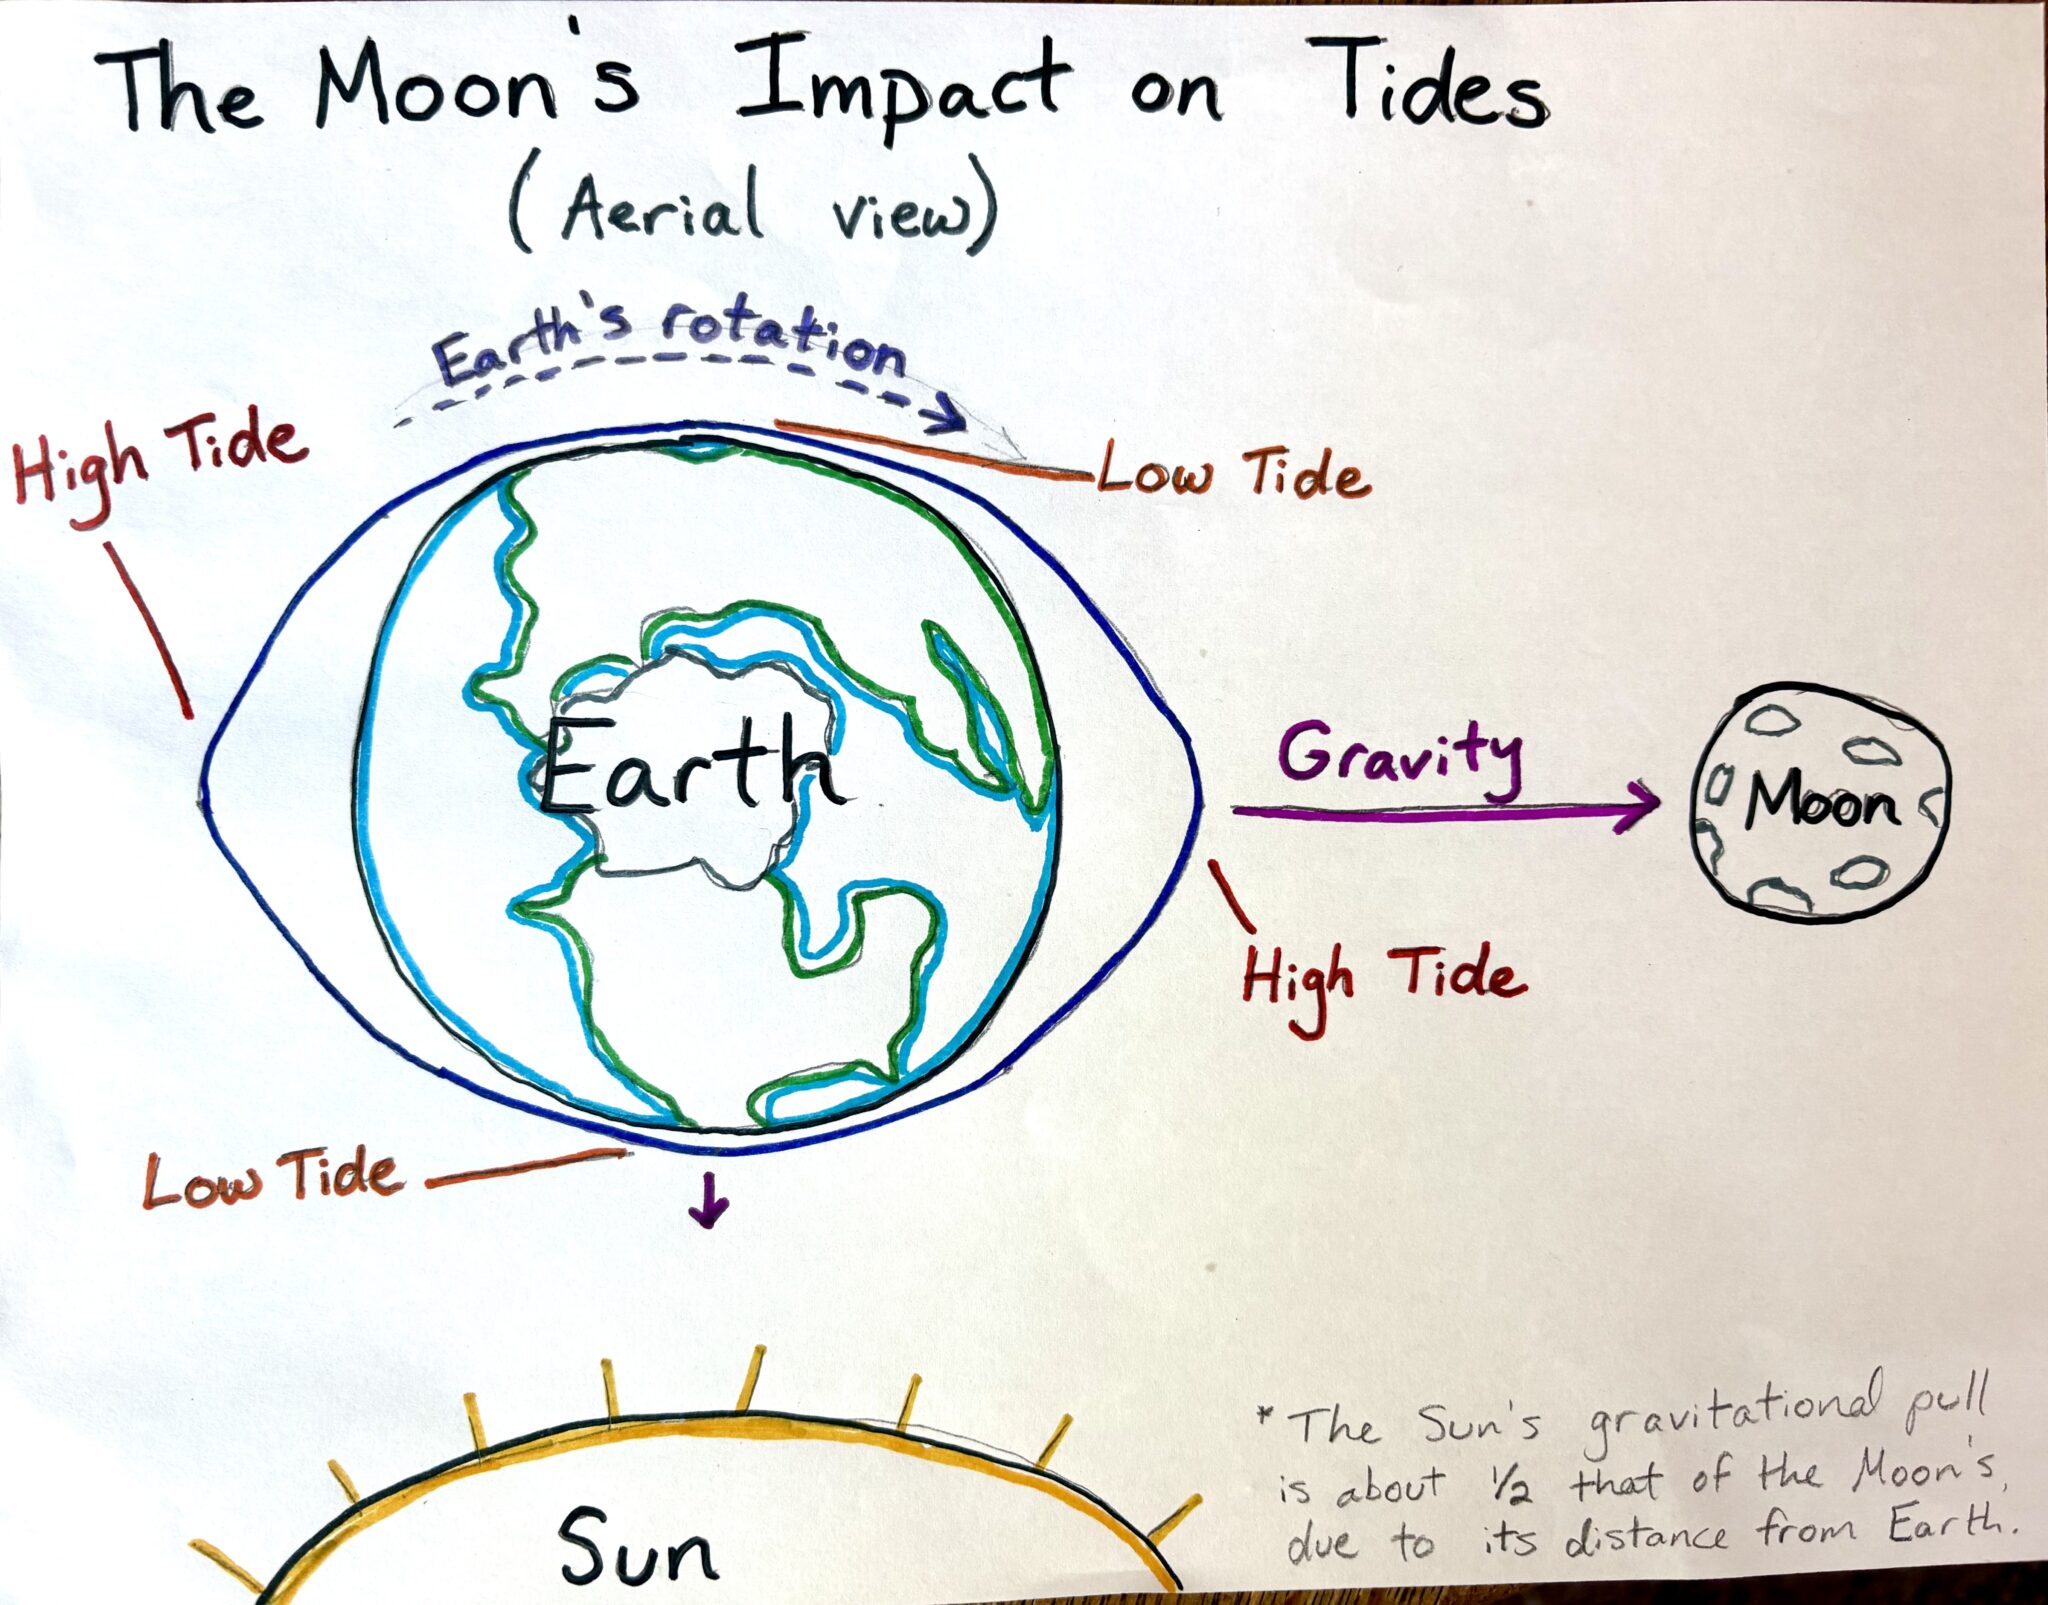 The Moon's Impact on Tides
(Aerial view)
Earth's rotation
High Tide
Low Tide
Earth
Gravity
Moon
High Tide
Low Tide
Sun
* The Sun's gravitational pull
is about 1/2 that of the Moon's,
due to its distance from Earth.